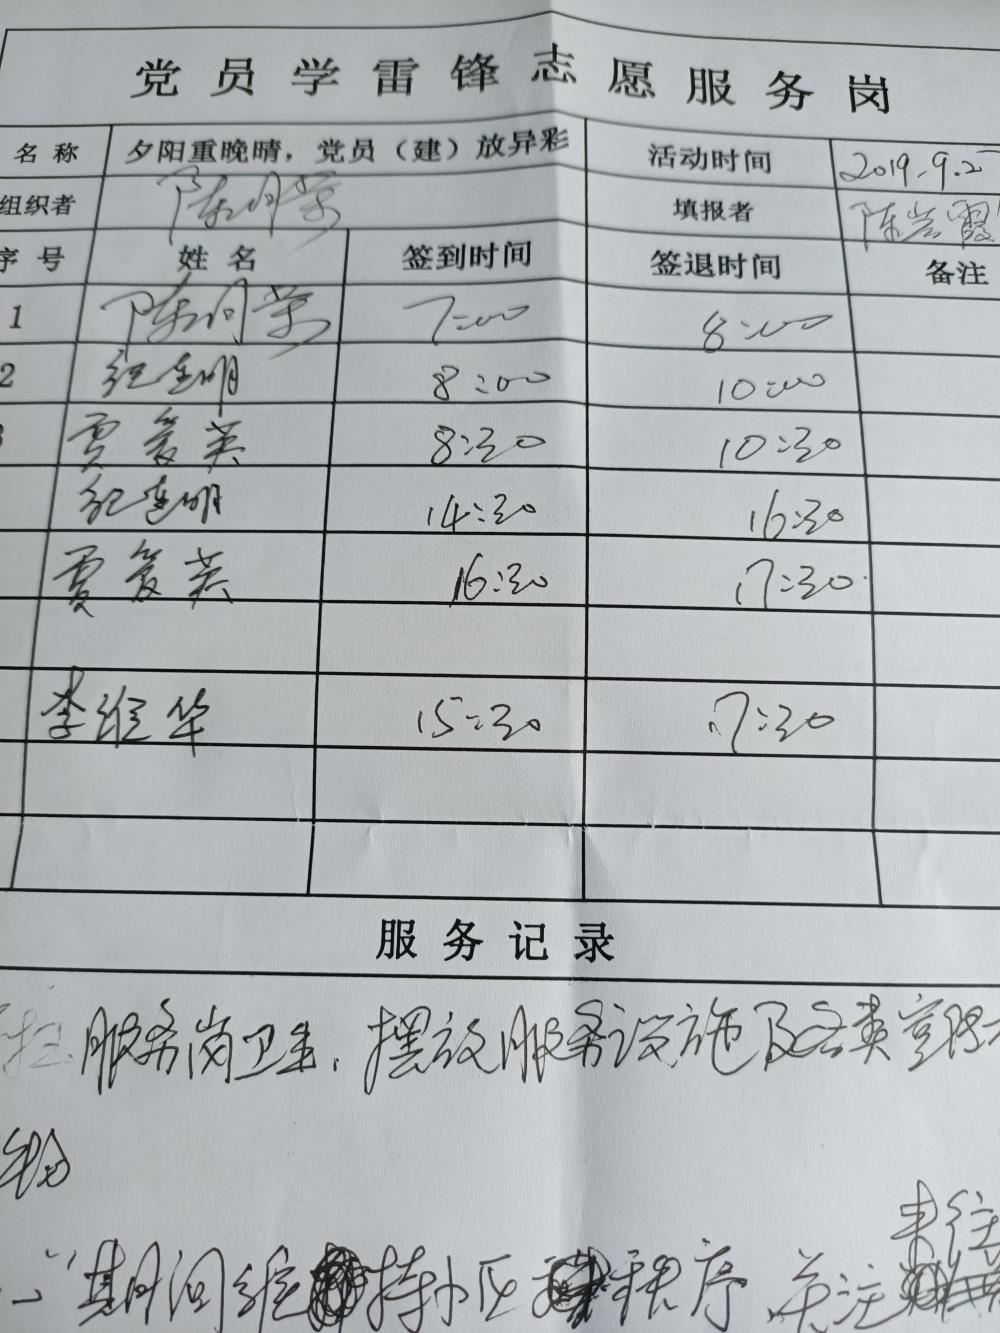 党员学雷锋志愿服务岗
名称 夕阳重晚晴，党员（建）放异彩 活动时间 2019.9.27
组织者 陈同荣 填报者 陈岩霞
序号 姓名 签到时间 签退时间 备注
1 陈同荣 7:00 8:00
2 纪连明 8:00 10:00
3 贾爱英 8:30 10:30
纪连明 14:30 16:30
贾爱英 16:30 17:30
李维华 15:30 17:30
服务记录
服务岗卫生，摆放服务设施及各类宣
物
期间维持小区秩序，关注
来往